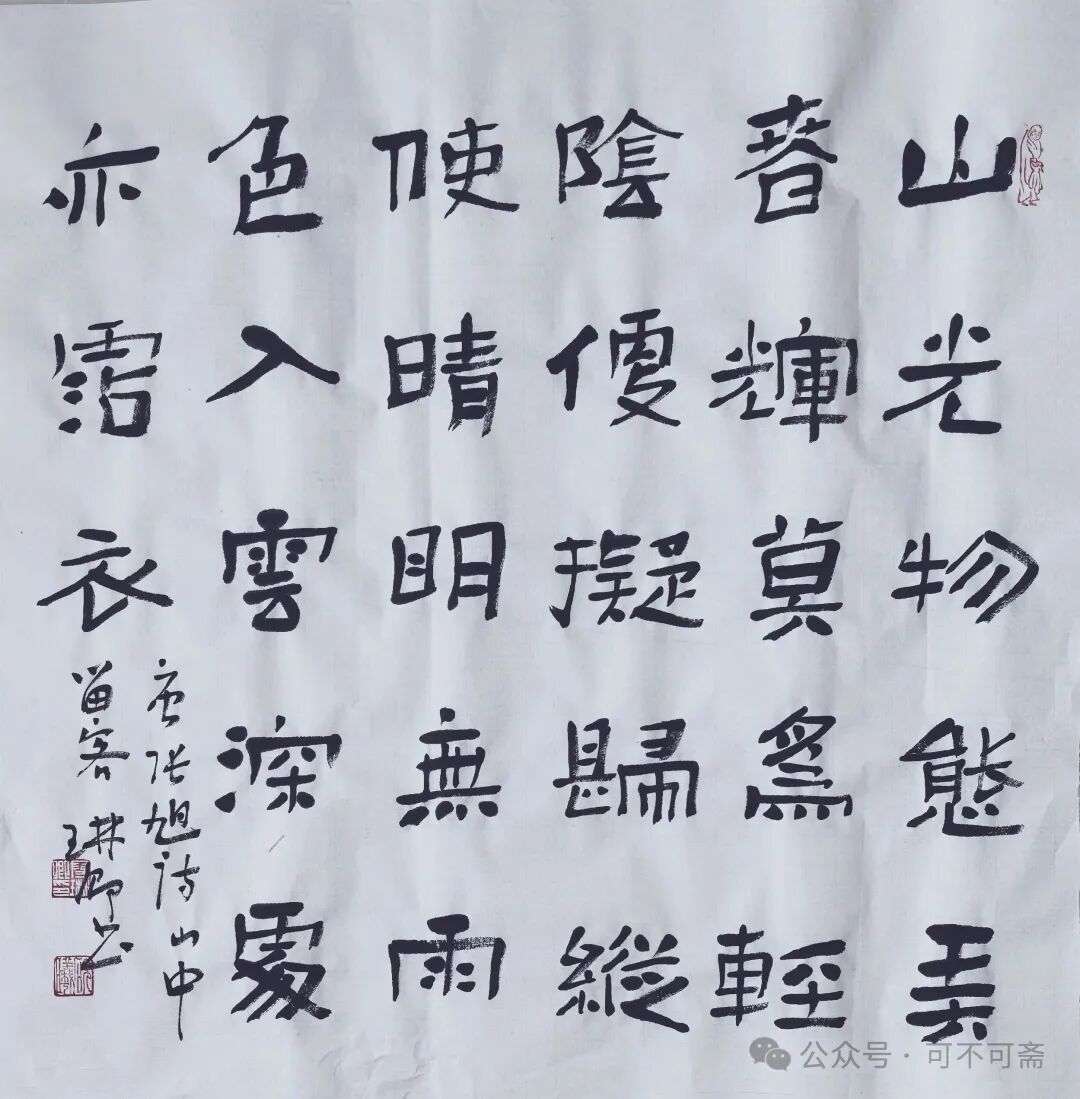 山光物態弄
春輝莫爲輕
陰便擬歸縱
使晴明無雨
色入雲深處
亦霑衣
唐張旭詩山中
留客 琳卿书
公众号·可不可斋